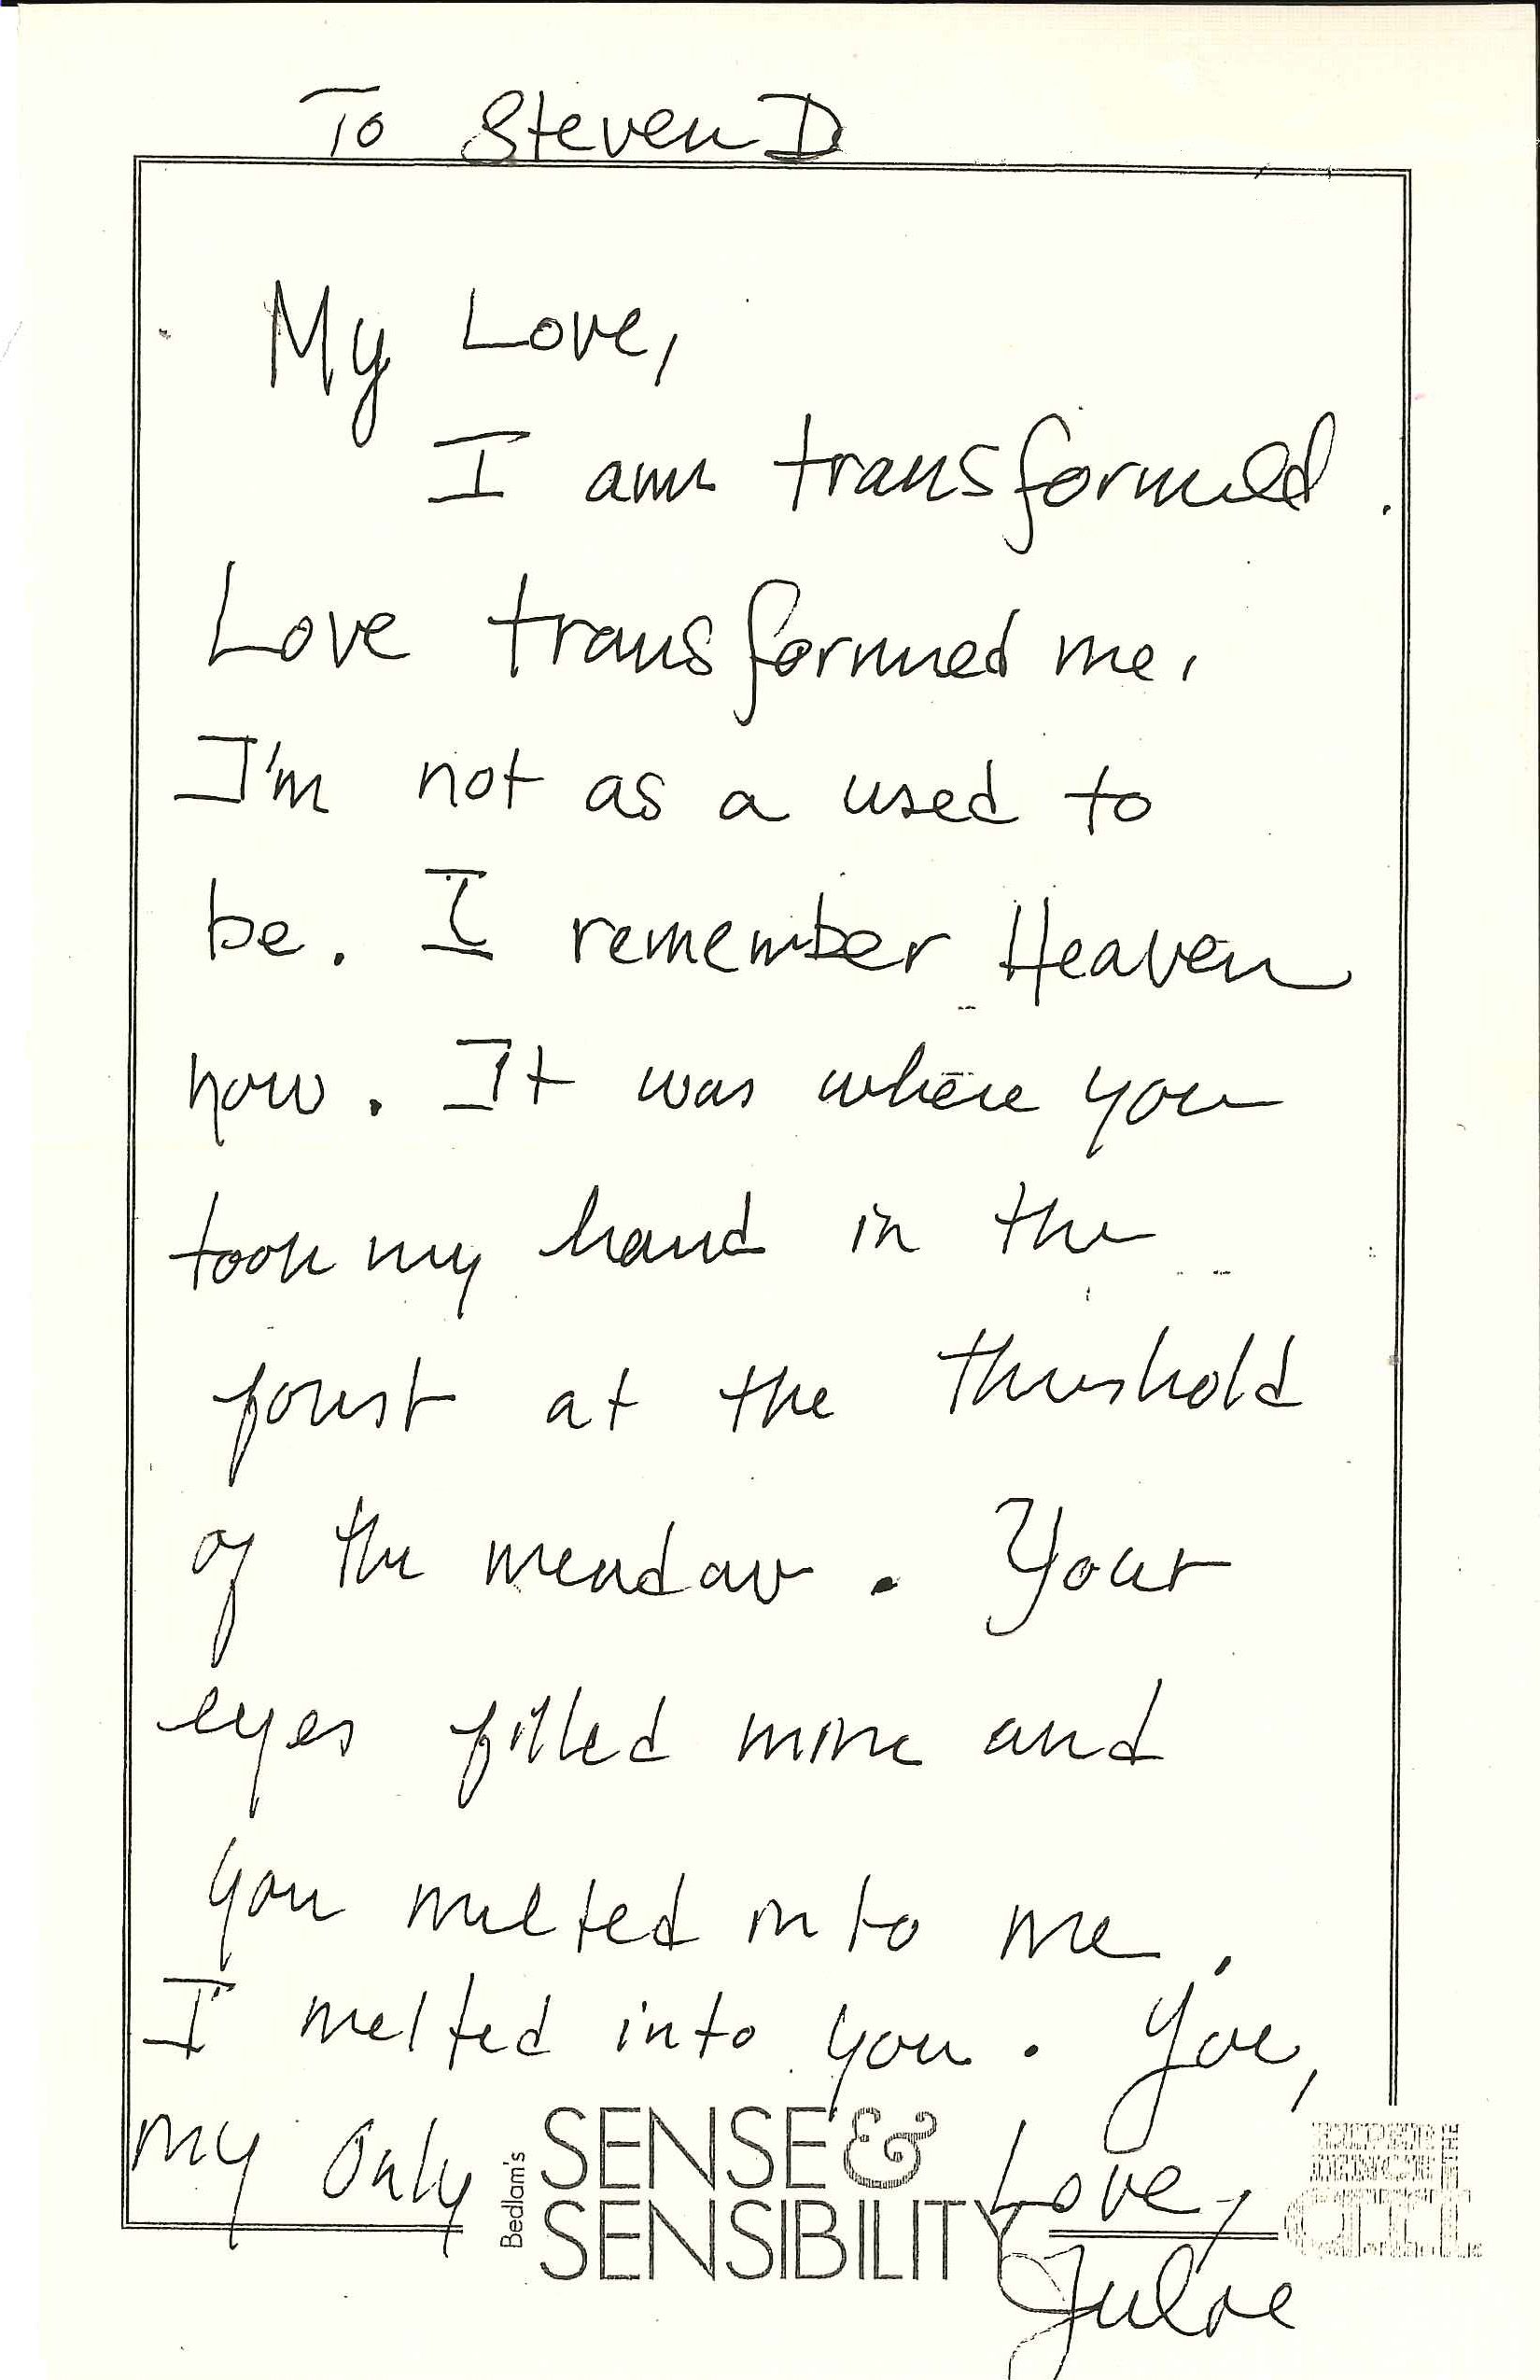 To Steven D
My Love,
I am transformed.
Love transformed me.
I'm not as a used to
be. I remember Heaven
now. It was where you
took my hand in the
forest at the threshold
of the meadow. Your
eyes filled mine and
you melted into me.
I melted into you. You,
my only Love,
Bedlam's
SENSE &
SENSIBILITY
Julie